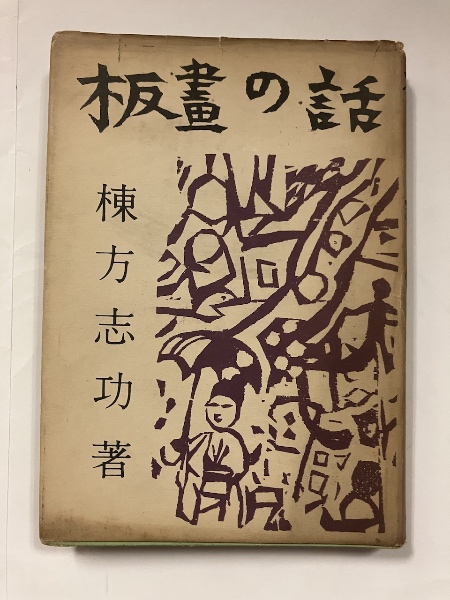 板畫の話
棟方志功著